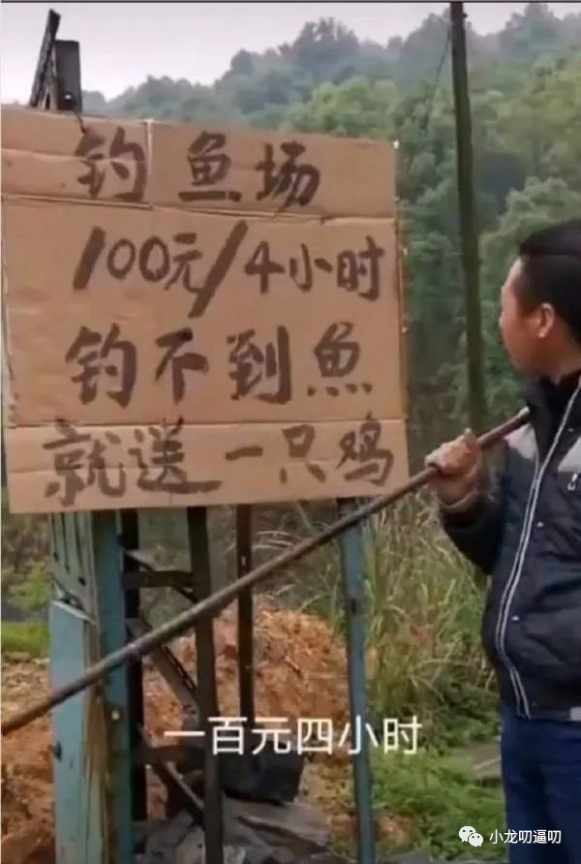 钓鱼场
100元/4小时
钓不到鱼
就送一只鸡
一百元四小时
小龙叨逼叨